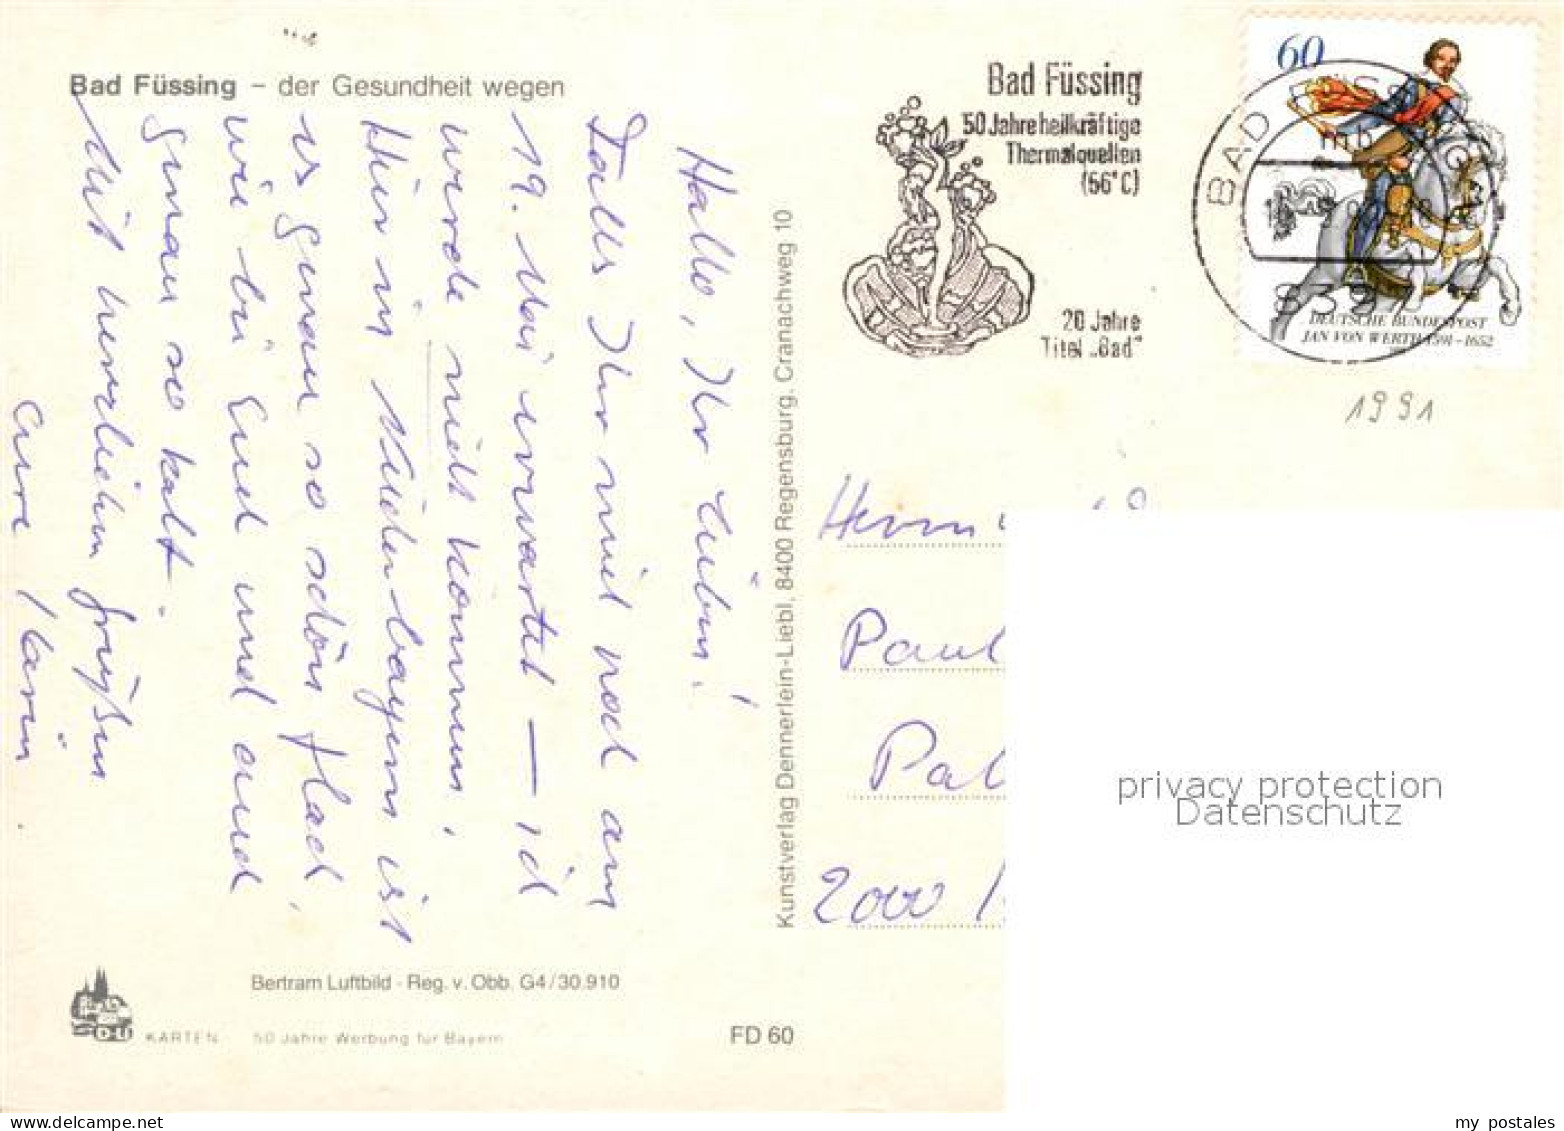 Bad Füssing – der Gesundheit wegen
Hallo, Ihr Lieben!
Falls Ihr mich noch am
19. Mai erwartet — ich
werde nicht kommen!
Hier in Niederbayern ist
es genau so schön flach,
wie bei Euch und auch
genau so kalt.
Mit herzlichen Grüßen
Eure Karin
Bertram Luftbild · Reg. v. Obb. G4/30.910
KARTEN 50 Jahre Werbung für Bayern
FD 60
Kunstverlag Dennerlein-Liebl, 8400 Regensburg, Cranachweg 10
Bad Füssing
50 Jahre heilkräftige
Thermalquellen
(56°C)
20 Jahre
Titel „Bad"
60
BAD
DEUTSCHE BUNDESPOST
JAN VON WERTH 1591–1652
1991
Herrn
Paul
Pal
2000
privacy protection
Datenschutz
my postales